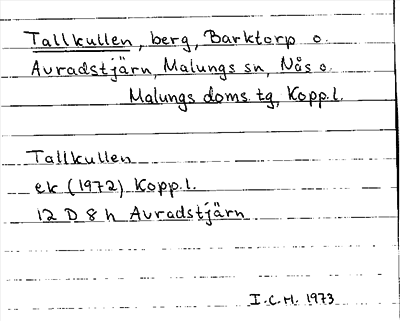 Tallkullen, berg, Barktorp o.
Avradstjärn, Malungs sn, Nås o.
Malungs doms. tg, Kopp. l.
Tallkullen
ek (1972) Kopp. l.
12 D 8 h Avradstjärn
I.C.H. 1973